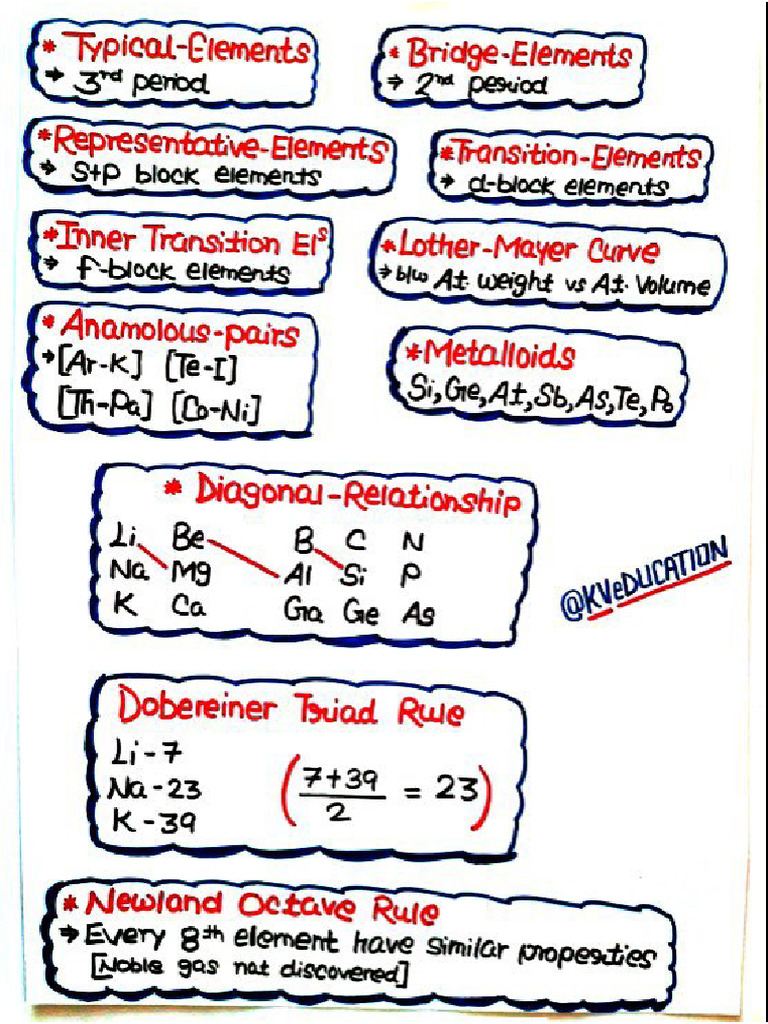 * Typical-Elements
→ 3rd period
* Bridge-Elements
→ 2nd period
*Representative-Elements
→ S+P block elements
*Transition-Elements
→ d-block elements
*Inner Transition Els
→ f-block elements
*Lother-Mayer Curve
→ b/w At. weight vs At. Volume
* Anamolous-pairs
→[Ar-K] [Te-I]
[Th-Pa] [Co-Ni]
*Metalloids
Si,Ge,At,Sb,As,Te,Po
* Diagonal-Relationship
Li Be B C N
Na Mg Al Si P
K Ca Ga Ge As
@KVeDUCATION
Dobereiner Triad Rule
Li-7
Na-23
K-39
(7+39/2 = 23)
* Newland Octave Rule
→ Every 8th element have similar properties
[Noble gas not discovered]